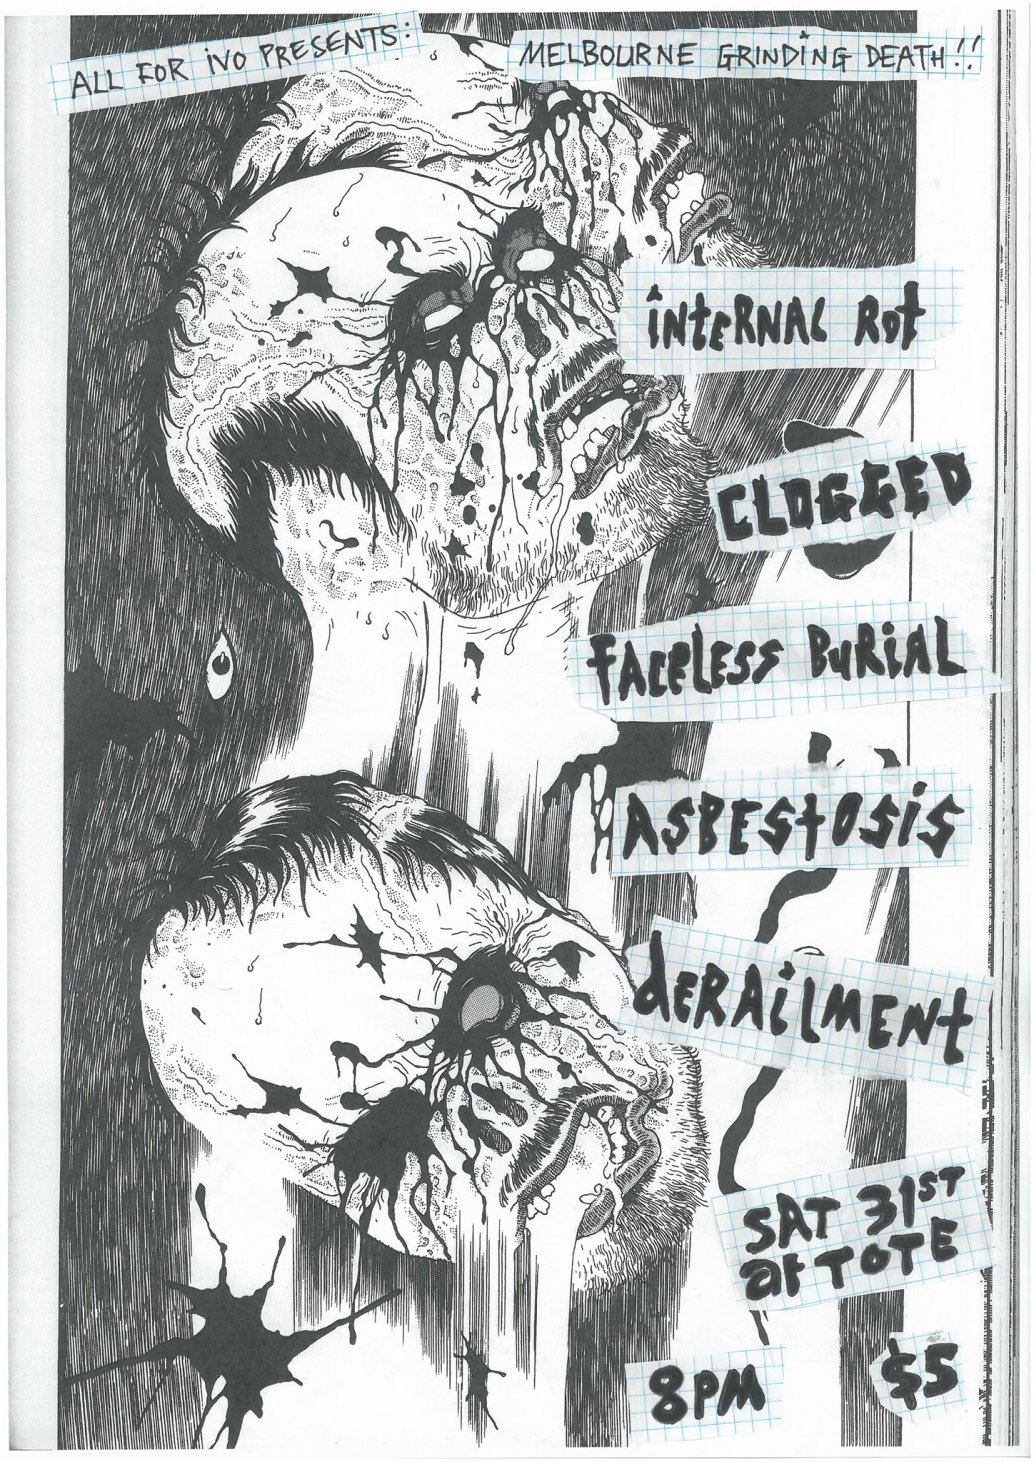 ALL FOR iVO PRESENTS:
MELBOURNE GRiNDiNG DEATH!!
iNtERNAL Rot
CLOGGED
FACELESS BuRiAL
ASBEStOSiS
dERAiLMENt
SAT 31ST
at TOTE
8PM
$5